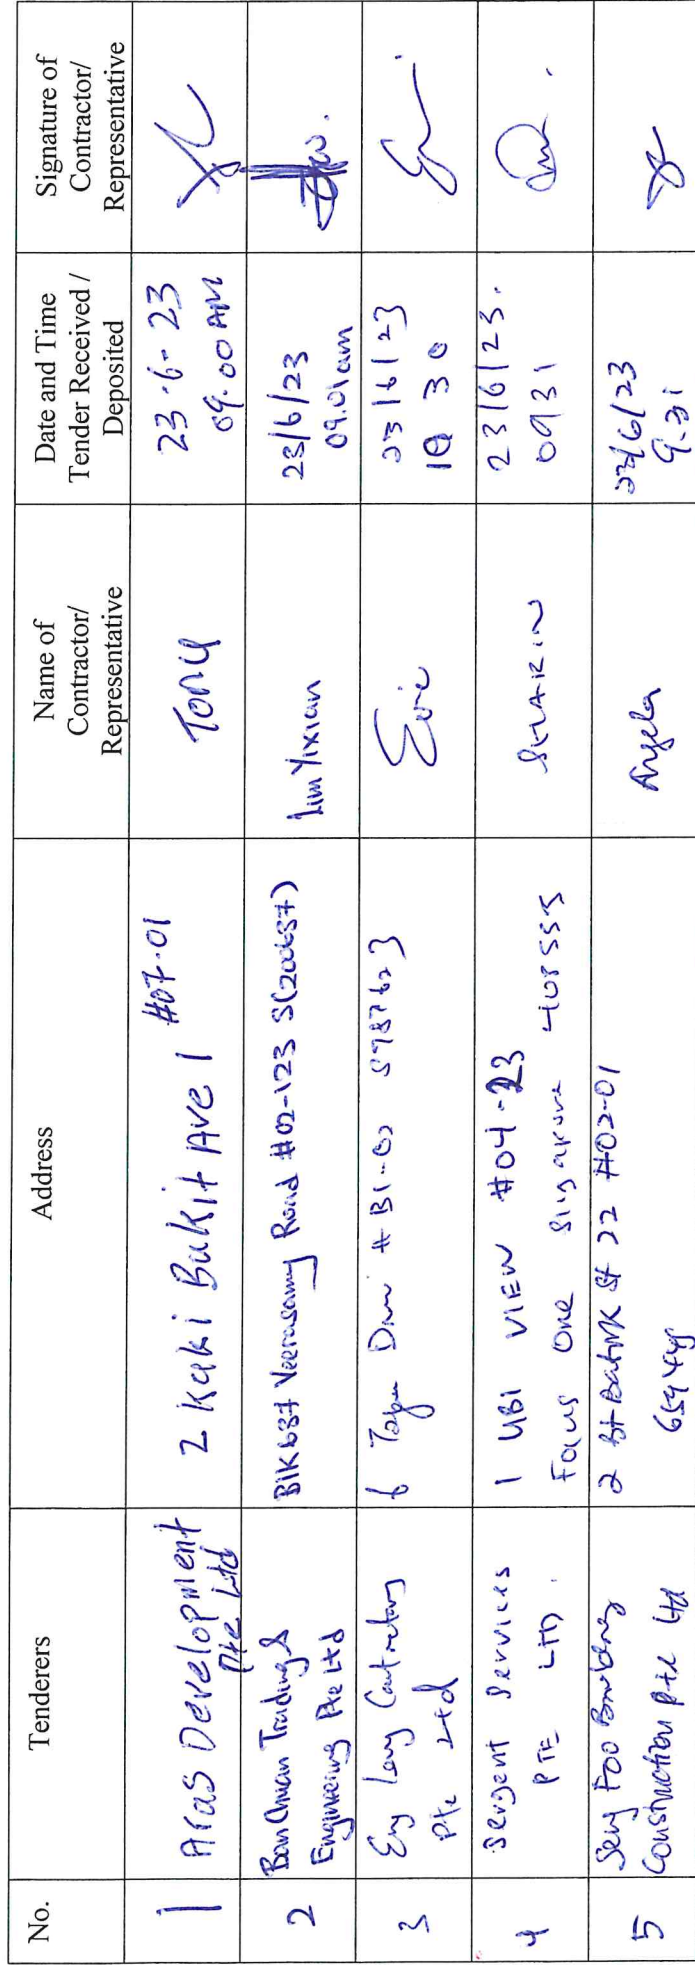 No.
Tenderers
Address
Name of
Contractor/
Representative
Date and Time
Tender Received /
Deposited
Signature of
Contractor/
Representative
1
Aras Development
Pte Ltd
2 Kaki Bukit Ave 1 #07-01
Tony
23-6-23
09.00 AM
2
Ban Chuan Trading &
Engineering Pte Ltd
Blk 637 Veerasamy Road #02-123 S(200637)
Lim Yixian
23/6/23
09.01am
3
Eng Contractors
Pte Ltd
6 #B1-02
Eric
23/6/23
30
4
Sergent Services
PTE LTD.
1 UBI VIEW #04-23
Focus One Singapore 408555
SHARIN
23/6/23.
0931
5
Seng Foo Building
Construction Pte Ltd
2 Bt Batok St 22 #02-01
Angela
23/6/23
9.31